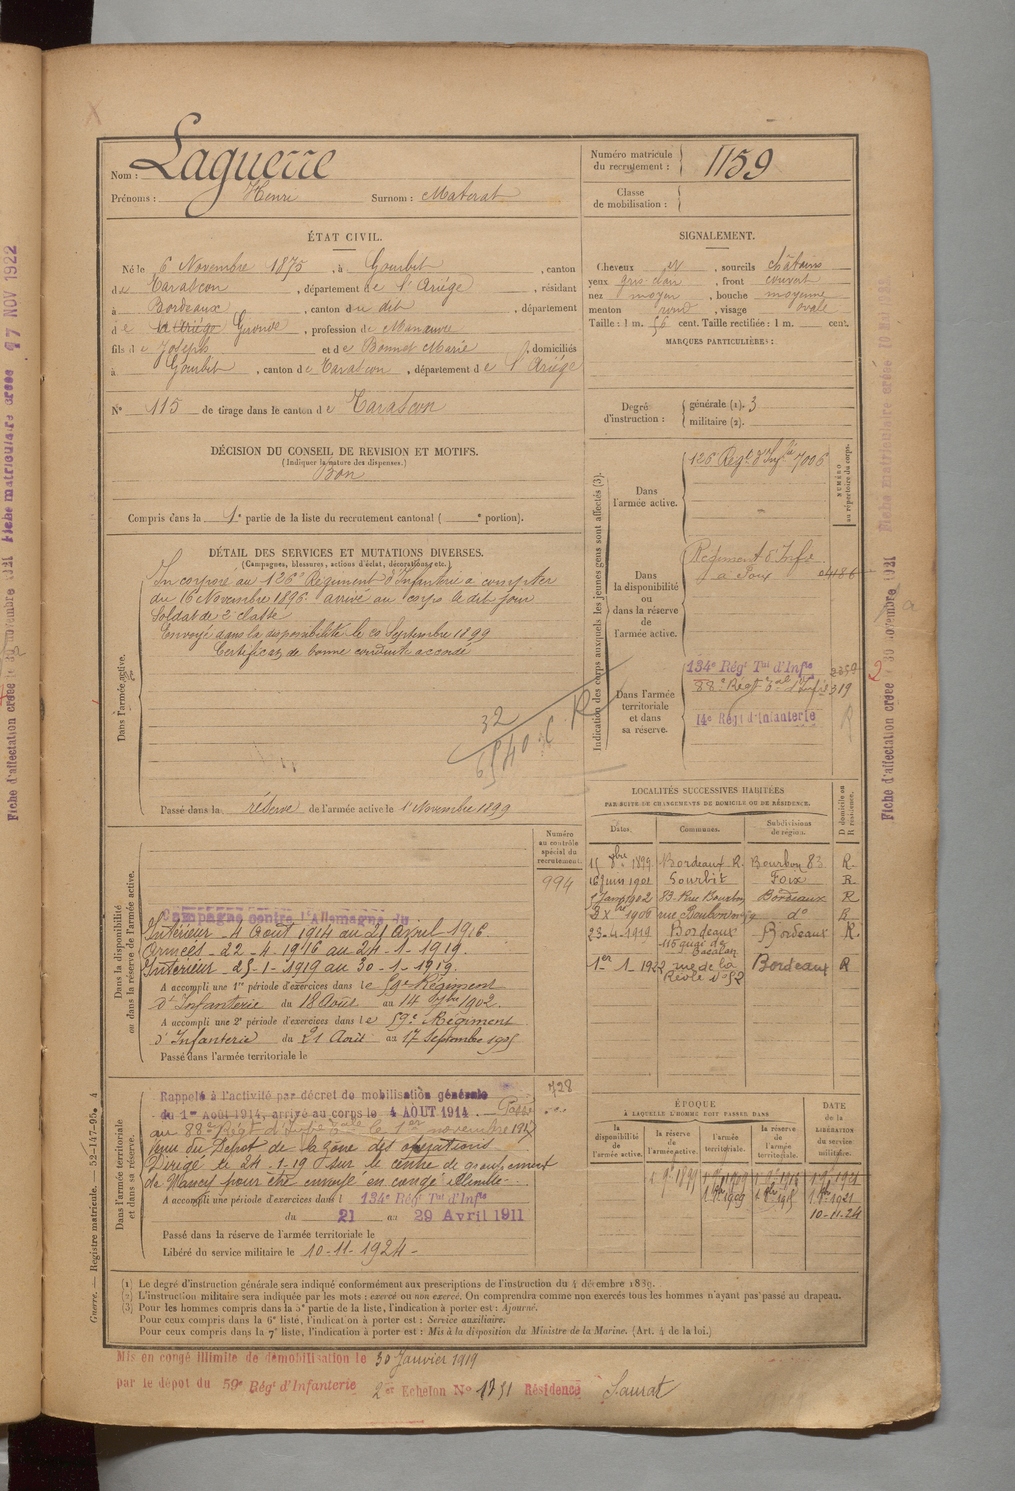 Nom : Laguerre
Prénoms : Henri Surnom : Materat
Numéro matricule du recrutement : 1159
Classe de mobilisation :
ÉTAT CIVIL.
Né le 6 Novembre 1875, à Gourbit, canton
de Tarascon, département de l'Ariége, résidant
à Bordeaux, canton du dit, département
de Gironde, profession de Manœuvre
fils de Joseph et de Bonnet Marie, domiciliés
à Gourbit, canton de Tarascon, département de l'Ariége
N° 115 de tirage dans le canton de Tarascon
SIGNALEMENT.
Cheveux et, sourcils châtains
yeux gris clair, front couvert
nez moyen, bouche moyenne
menton rond, visage ovale
Taille : 1 m. 56 cent. Taille rectifiée : 1 m. cent.
MARQUES PARTICULIÈRES :
Degré d'instruction : générale (1). 3
militaire (2).
DÉCISION DU CONSEIL DE REVISION ET MOTIFS.
(Indiquer la nature des dispenses.)
Bon
Compris dans la 1e partie de la liste du recrutement cantonal ( e portion).
DÉTAIL DES SERVICES ET MUTATIONS DIVERSES.
(Campagnes, blessures, actions d'éclat, décorations, etc.)
Dans l'armée active.
Incorporé au 126e Régiment d'Infanterie à compter
du 16 Novembre 1896 arrivé au corps le dit jour
Soldat de 2e classe
Envoyé dans la disponibilité le 20 Septembre 1899
Certificat de bonne conduite accordé
32
Passé dans la réserve de l'armée active le 1 Novembre 1899
Indication des corps auxquels les jeunes gens sont affectés (3).
NUMÉRO au répertoire du corps.
Dans l'armée active.
126 Régt d'Infie 7006
Dans la disponibilité ou dans la réserve de l'armée active.
Régiment d'Infie
à Foix
Dans l'armée territoriale et dans sa réserve.
134e Régt Tal d'Infie
88e Régt
14e Régt d'Infanterie
LOCALITÉS SUCCESSIVES HABITÉES
PAR SUITE DE CHANGEMENTS DE DOMICILE OU DE RÉSIDENCE.
Dates. Communes. Subdivisions de région. D domicile ou R résidence.
1899 Bordeaux R. Bourbon 83 R.
16 Juin 1901 Gourbit Foix R
1902 83 Rue Bourbon Bordeaux R
1906 rue Bourbon do R
23-4-1919 Bordeaux Bordeaux R.
116 quai de Bacalan
1er 1 1922 rue de la Réole N° 52 Bordeaux R
Numéro au contrôle spécial du recrutement.
994
Dans la disponibilité ou dans la réserve de l'armée active.
Campagne contre l'Allemagne du
Intérieur 4 Août 1914 au 21 Avril 1916.
Armées 22-4-1916 au 24-1-1919.
Intérieur 25-1-1919 au 30-1-1919.
A accompli une 1re période d'exercices dans le 59e Régiment
d'Infanterie du 18 Août au 14 7bre 1902.
A accompli une 2e période d'exercices dans le 59e Régiment
d'Infanterie du 21 Août au 17 Septembre 1905
Passé dans l'armée territoriale le
Dans l'armée territoriale et dans sa réserve.
728
Rappelé à l'activité par décret de mobilisation générale
du 1er Août 1914, arrivé au corps le 4 AOUT 1914. Passé
au 88e Régt d'Infie le 1er novembre 1917
venu du Dépôt de la zone des opérations
Dirigé le 24-1-19 sur le centre de groupement
de Nancy pour être envoyé en congé illimité.
A accompli une période d'exercices dans l 134e Régt Tal d'Infie
du 21 au 29 Avril 1911
Passé dans la réserve de l'armée territoriale le
Libéré du service militaire le 10-11-1924
ÉPOQUE
A LAQUELLE L'HOMME DOIT PASSER DANS
DATE de la LIBÉRATION du service militaire.
la disponibilité de l'armée active. la réserve de l'armée active. l'armée territoriale. la réserve de l'armée territoriale.
10-11-24
(1) Le degré d'instruction générale sera indiqué conformément aux prescriptions de l'instruction du 4 décembre 1889.
(2) L'instruction militaire sera indiquée par les mots : exercé ou non exercé. On comprendra comme non exercés tous les hommes n'ayant pas passé au drapeau.
(3) Pour les hommes compris dans la 5e partie de la liste, l'indication à porter est : Ajourné.
Pour ceux compris dans la 6e liste, l'indication à porter est : Service auxiliaire.
Pour ceux compris dans la 7e liste, l'indication à porter est : Mis à la disposition du Ministre de la Marine. (Art. 4 de la loi.)
Mis en congé illimité de démobilisation le 30 Janvier 1919
par le dépôt du 59e Régt d'Infanterie 2e Echelon N° 1231 Résidence Saurat
Guerre. — Registre matricule. — 52-147-95. 4